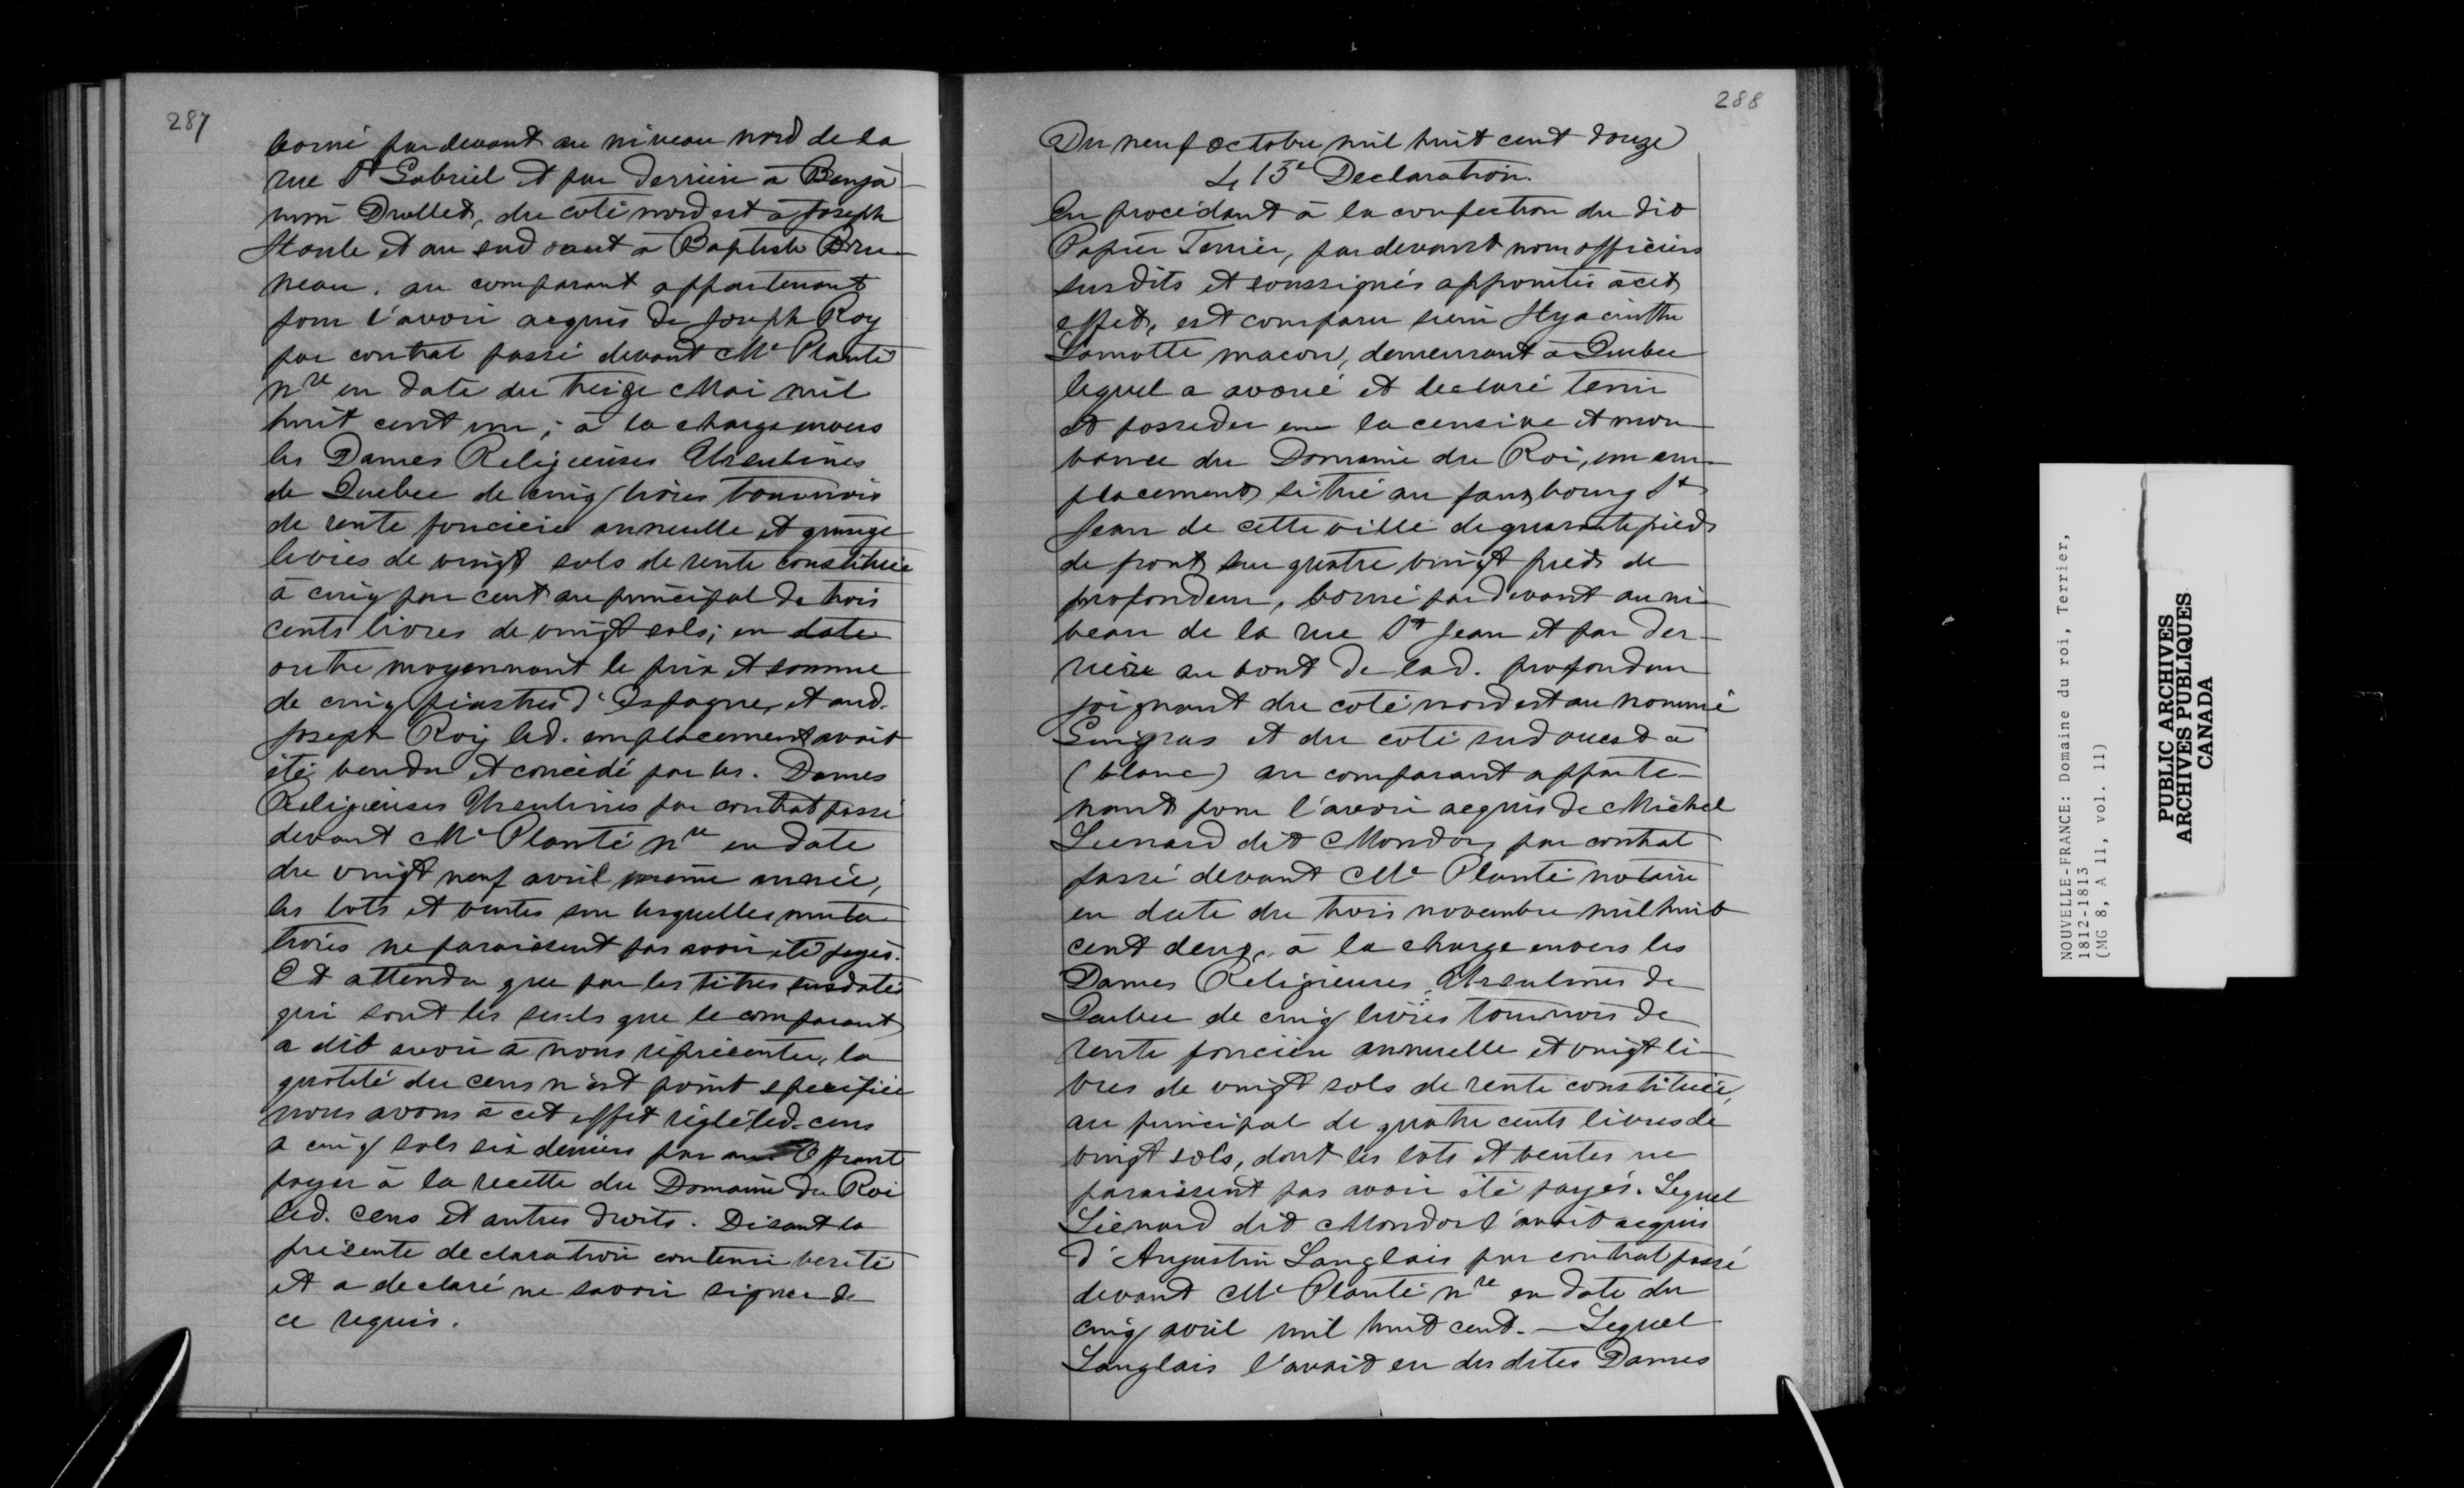 287
borné par devant au niveau nord de la
rue St Gabriel et par derrière à Benja-
min Drolled, du coté nord est à Joseph
Houle et au sud ouest à Baptiste Bru-
neau. au comparant appartenant
pour l'avoir acquis de Joseph Roy
par contrat passé devant Me Planté
nre en date du treize Mai mil
huit cent un; à la charge envers
les Dames Religieuses Ursulines
de Quebec de cinq livres tournois
de rente foncière annuelle et quinze
livres de vingt sols de rente constituée
à cinq par cent au principal de trois
cents livres de vingt sols; en date
outre moyennant le prix et somme
de cinq piastres d'Espagne, et aud.
Joseph Roy led. emplacement avait
été vendu et concédé par les. Dames
Religieuses Ursulines par contrat passé
devant Me Planté nre en date
du vingt neuf avril même année,
les lots et ventes sur lesquelles muta
tions ne paraissent pas avoir été payés.
Et attendu que par les titres susdatés
qui sont les seuls que le comparant
a dit avoir à nous représenter, la
quotité du cens n'est point specifiée
nous avons à cet effet réglé led. cens
a cinq sols six deniers par an Offrant
payer à la recette du Domaine du Roi
led. cens et autres droits. Disant la
présente declaration contenir verité
et a declaré ne savoir signer de
ce requis.
288
Du neuf octobre mil huit cent douze
413e Declaration.
En procédant à la confection du dit
Papier Terrier, par devant nous officiers
susdits et soussignés appointés à cet
effet, est comparu sieur Hyacinthe
Lamotte macon, demeurant à Quebec
lequel a avoué et declaré tenir
et posseder en la censive et mou
vance du Domaine du Roi, un em-
placement situé au fauxbourg St
Jean de cette ville de quarante pieds
de front sur quatre vingt pieds de
profondeur, borné par devant au ni-
veau de la rue St Jean et par der-
rière au bout de lad. profondeur
joignant du coté nord est au nommé
Gingras et du coté sud ouest à
(blanc) au comparant apparte-
nant pour l'avoir acquis de Michel
Lienard dit Mondor, par contrat
passé devant Me Planté notaire
en date du trois novembre mil huit
cent deux, à la charge envers les
Dames Religieuses Ursulines de
Quebec de cinq livres tournois de
rente foncière annuelle et vingt li-
vres de vingt sols de rente constituée,
au principal de quatre cents livres de
vingt sols, dont les lots et ventes ne
paraissent pas avoir été payés. Lequel
Liénard dit Mondor l'avait acquis
d'Augustin Langlais par contrat passé
devant Me Planté nre en date du
cinq avril mil huit cent. — Lequel
Langlais l'avait eu des dites Dames
NOUVELLE-FRANCE: Domaine du roi, Terrier,
1812-1813
(MG 8, A 11, vol. 11)
PUBLIC ARCHIVES
ARCHIVES PUBLIQUES
CANADA